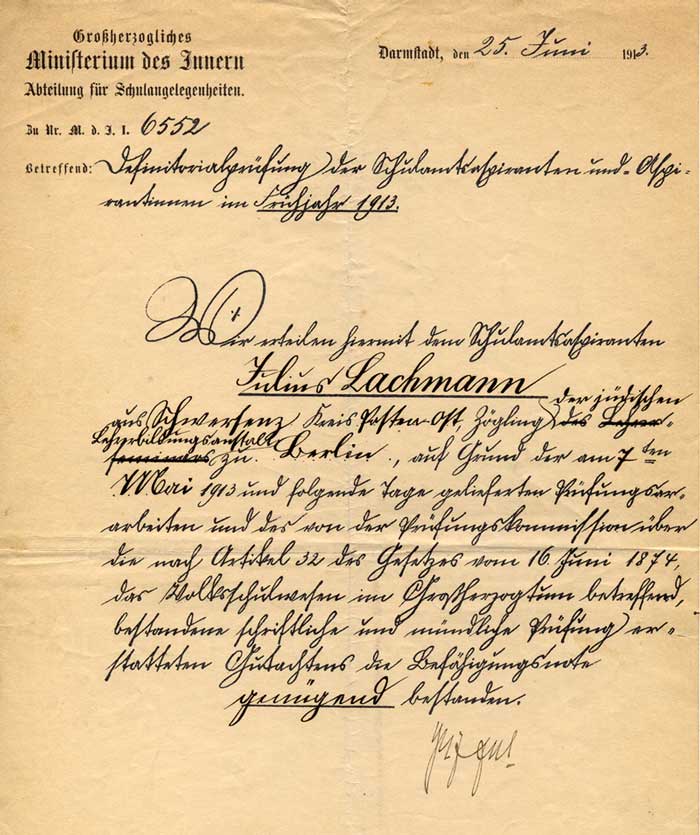 Großherzogliches
Ministerium des Innern
Abteilung für Schulangelegenheiten.
Darmstadt, den 25. Juni 1913.
Zu Nr. M. d. J. I. 6552
Betreffend: Definitorialprüfung der Schulamtsaspiranten und -Aspi-
rantinnen im Frühjahr 1913.
Wir erteilen hiermit dem Schulamtsaspiranten
Julius Lachmann
der jüdischen
aus Schwersenz Kreis Posten-Ost, Zögling des Lehrer-
Lehrerbildungsanstalt
seminars zu Berlin, auf Grund der am 7ten
Mai 1913 und folgende Tage gelieferten Prüfungsar-
arbeiten und des von der Prüfungskommission über
die nach Artikel 32 des Gesetzes vom 16. Juni 1874,
das Volksschulwesen im Großherzogtum betreffend,
bestandene schriftliche und mündliche Prüfung er-
statteten Gutachtens die Befähigungsnote
genügend bestanden.